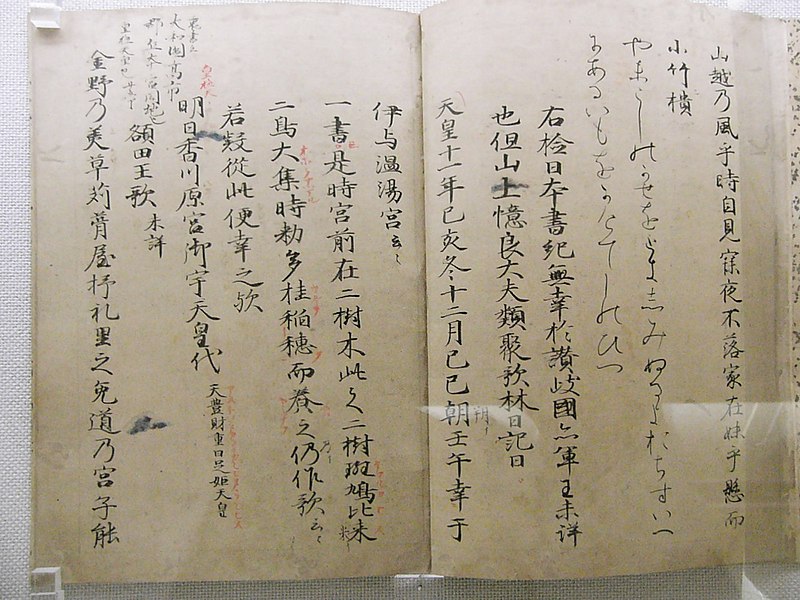 山越乃風乎時自見寐夜不落家在妹乎懸而
小竹樻
やまこしのかせをときしみぬるよおちすいへ
にあるいもをかけてしのひつ
右撿日本書紀無幸於讃岐國亦軍王未詳
也但山上憶良大夫類聚歌林曰記曰
天皇十一年己亥冬十二月己巳朝壬午幸于
朔イ
伊与温湯宮云々
一書是時宮前在二樹木此之二樹斑鳩比未
米
二鳥大集時勅多桂稲穂而養之仍作歌云々
若疑從此便幸之歟
明日香川原宮御宇天皇代 天豊財重日足姫天皇
大和國高市
額田王歌 未詳
金野乃美草苅葺屋杼礼里之兎道乃宮子能